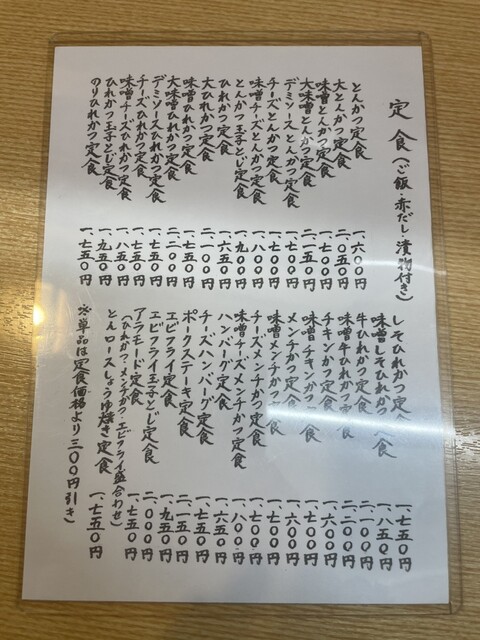 定食(ご飯・赤だし・漬物付き)
とんかつ定食 一、六〇〇円
大とんかつ定食 二、〇五〇円
味噌とんかつ定食 一、七〇〇円
大味噌とんかつ定食 二、一五〇円
デミソースとんかつ定食 一、七〇〇円
チーズとんかつ定食 一、七〇〇円
味噌チーズとんかつ定食 一、八〇〇円
とんかつ玉子とじ定食 一、九〇〇円
ひれかつ定食 一、六五〇円
大ひれかつ定食 二、一〇〇円
味噌ひれかつ定食 一、七五〇円
大味噌ひれかつ定食 二、二〇〇円
デミソースひれかつ定食 一、七五〇円
チーズひれかつ定食 一、七五〇円
味噌チーズひれかつ定食 一、八五〇円
ひれかつ玉子とじ定食 一、九五〇円
のりひれかつ定食 一、七五〇円
しそひれかつ定食 一、七五〇円
味噌しそひれかつ 一、八五〇円
牛ひれかつ定食 二、一〇〇円
味噌牛ひれかつ定食 二、二〇〇円
チキンかつ定食 一、六〇〇円
味噌チキンかつ定食 一、七〇〇円
メンチかつ定食 一、六〇〇円
味噌メンチかつ定食 一、七〇〇円
チーズメンチかつ定食 一、七〇〇円
味噌チーズメンチかつ定食 一、八〇〇円
ハンバーグ定食 一、六五〇円
チーズハンバーグ定食 一、七五〇円
ポークステーキ定食 二、一五〇円
エビフライ定食 一、九五〇円
エビフライ玉子とじ定食 二、〇〇〇円
アラモード定食 一、七五〇円
(ひれかつ・メンチかつ・エビフライ盛合わせ)
とんロースしょうゆ焼き定食 一、七五〇円
※単品は定食価格より三〇〇円引き)